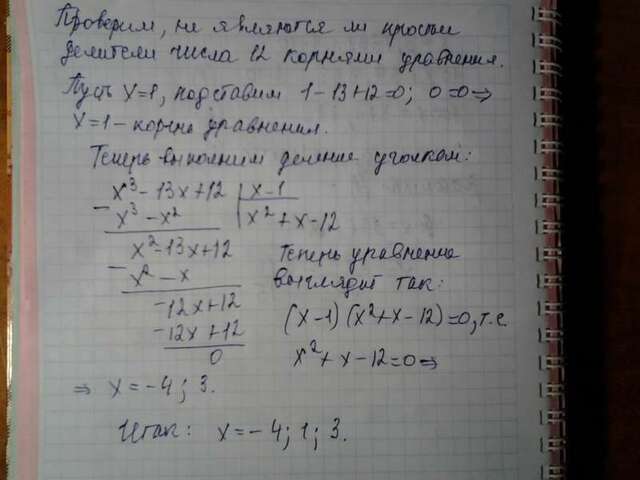 Проверим, не являются ли простые
делители числа 12 корнями уравнения.
Пусть x=1, подставим 1-13+12=0; 0=0 ⇒
x=1 - корень уравнения.
Теперь выполним деление уголком:
x³ - 13x + 12 | x - 1
- x³ - x² x² + x - 12
x² - 13x + 12
- x² - x
-12x + 12
-12x + 12
0
Теперь уравнение
выглядит так:
(x-1)(x²+x-12)=0, т.е
x² + x - 12 = 0 ⇒
⇒ x = -4; 3.
Итак: x = -4; 1; 3.